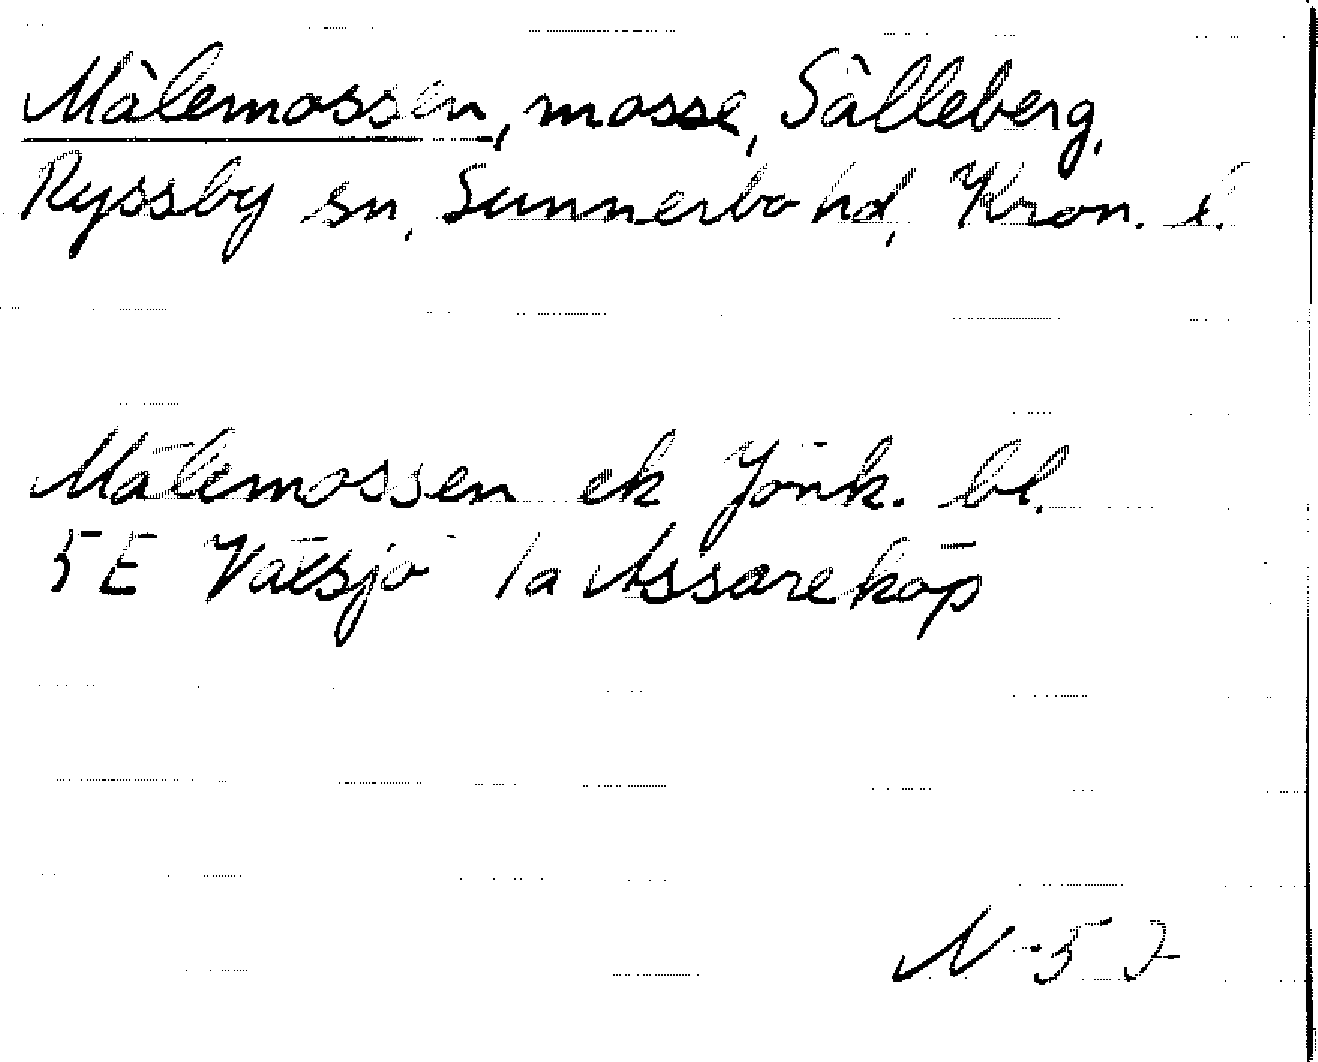 Mälemossen, mosse, Sälleberg,
Ryssby sn, Sunnerbo hd, Kron. l.
Mälemossen ek Jönk. bl.
5E Växsjö 1a Assareköp